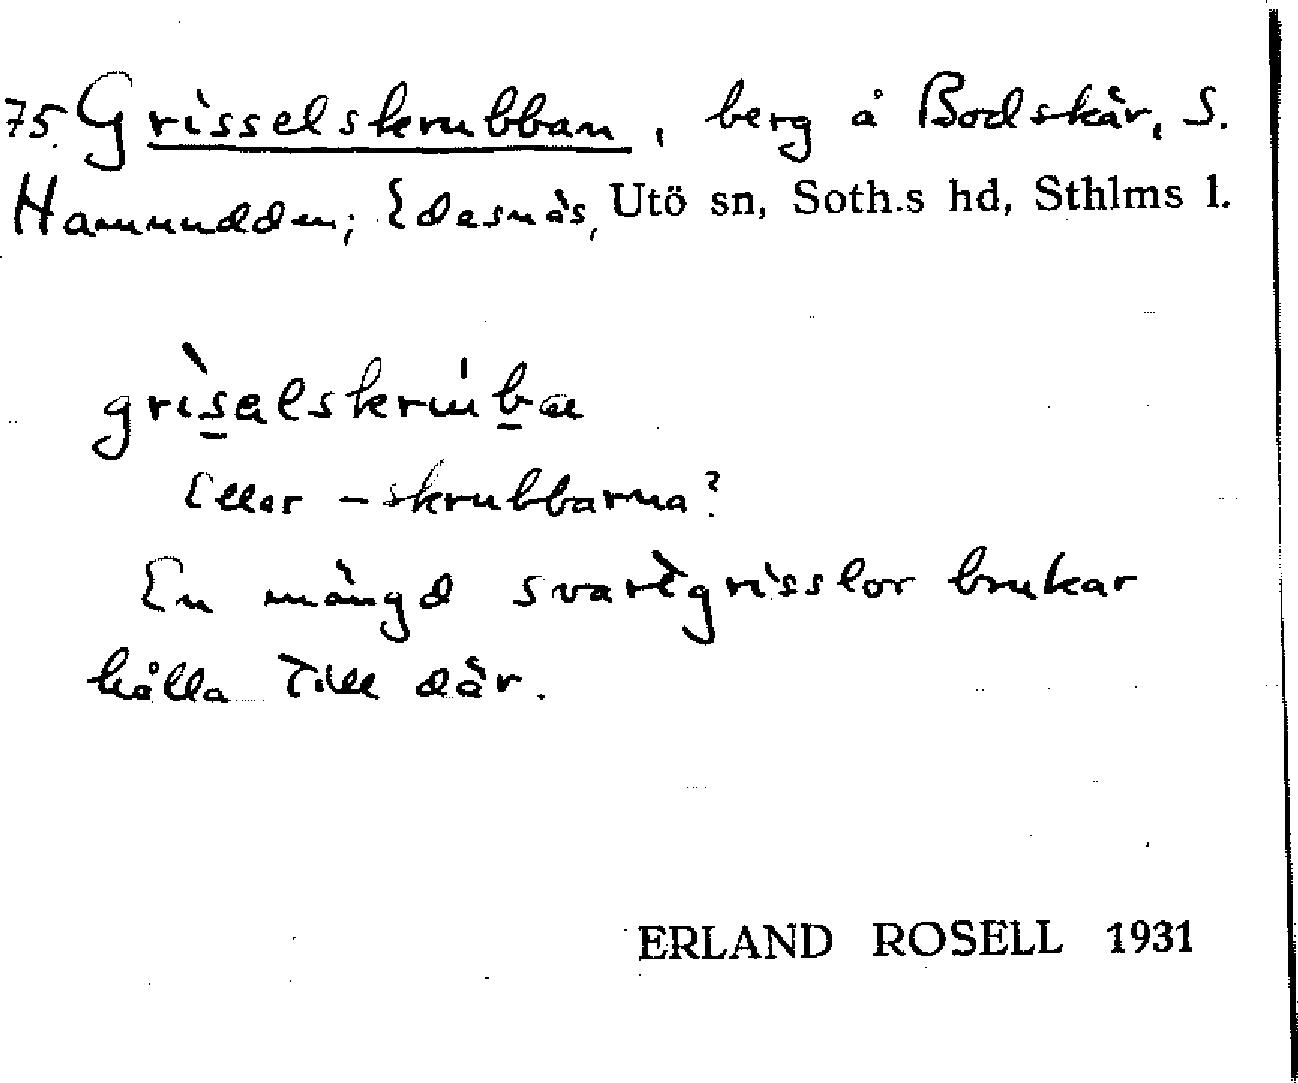 75. Grisselskrubban, berg å Bodskär, S.
Hamnudden; Edesnäs, Utö sn, Soth.s hd, Sthlms l.
grìsalskruba
Eller -skrubbarna?
En mängd svartgrisslor brukar
hålla till där.
ERLAND ROSELL 1931